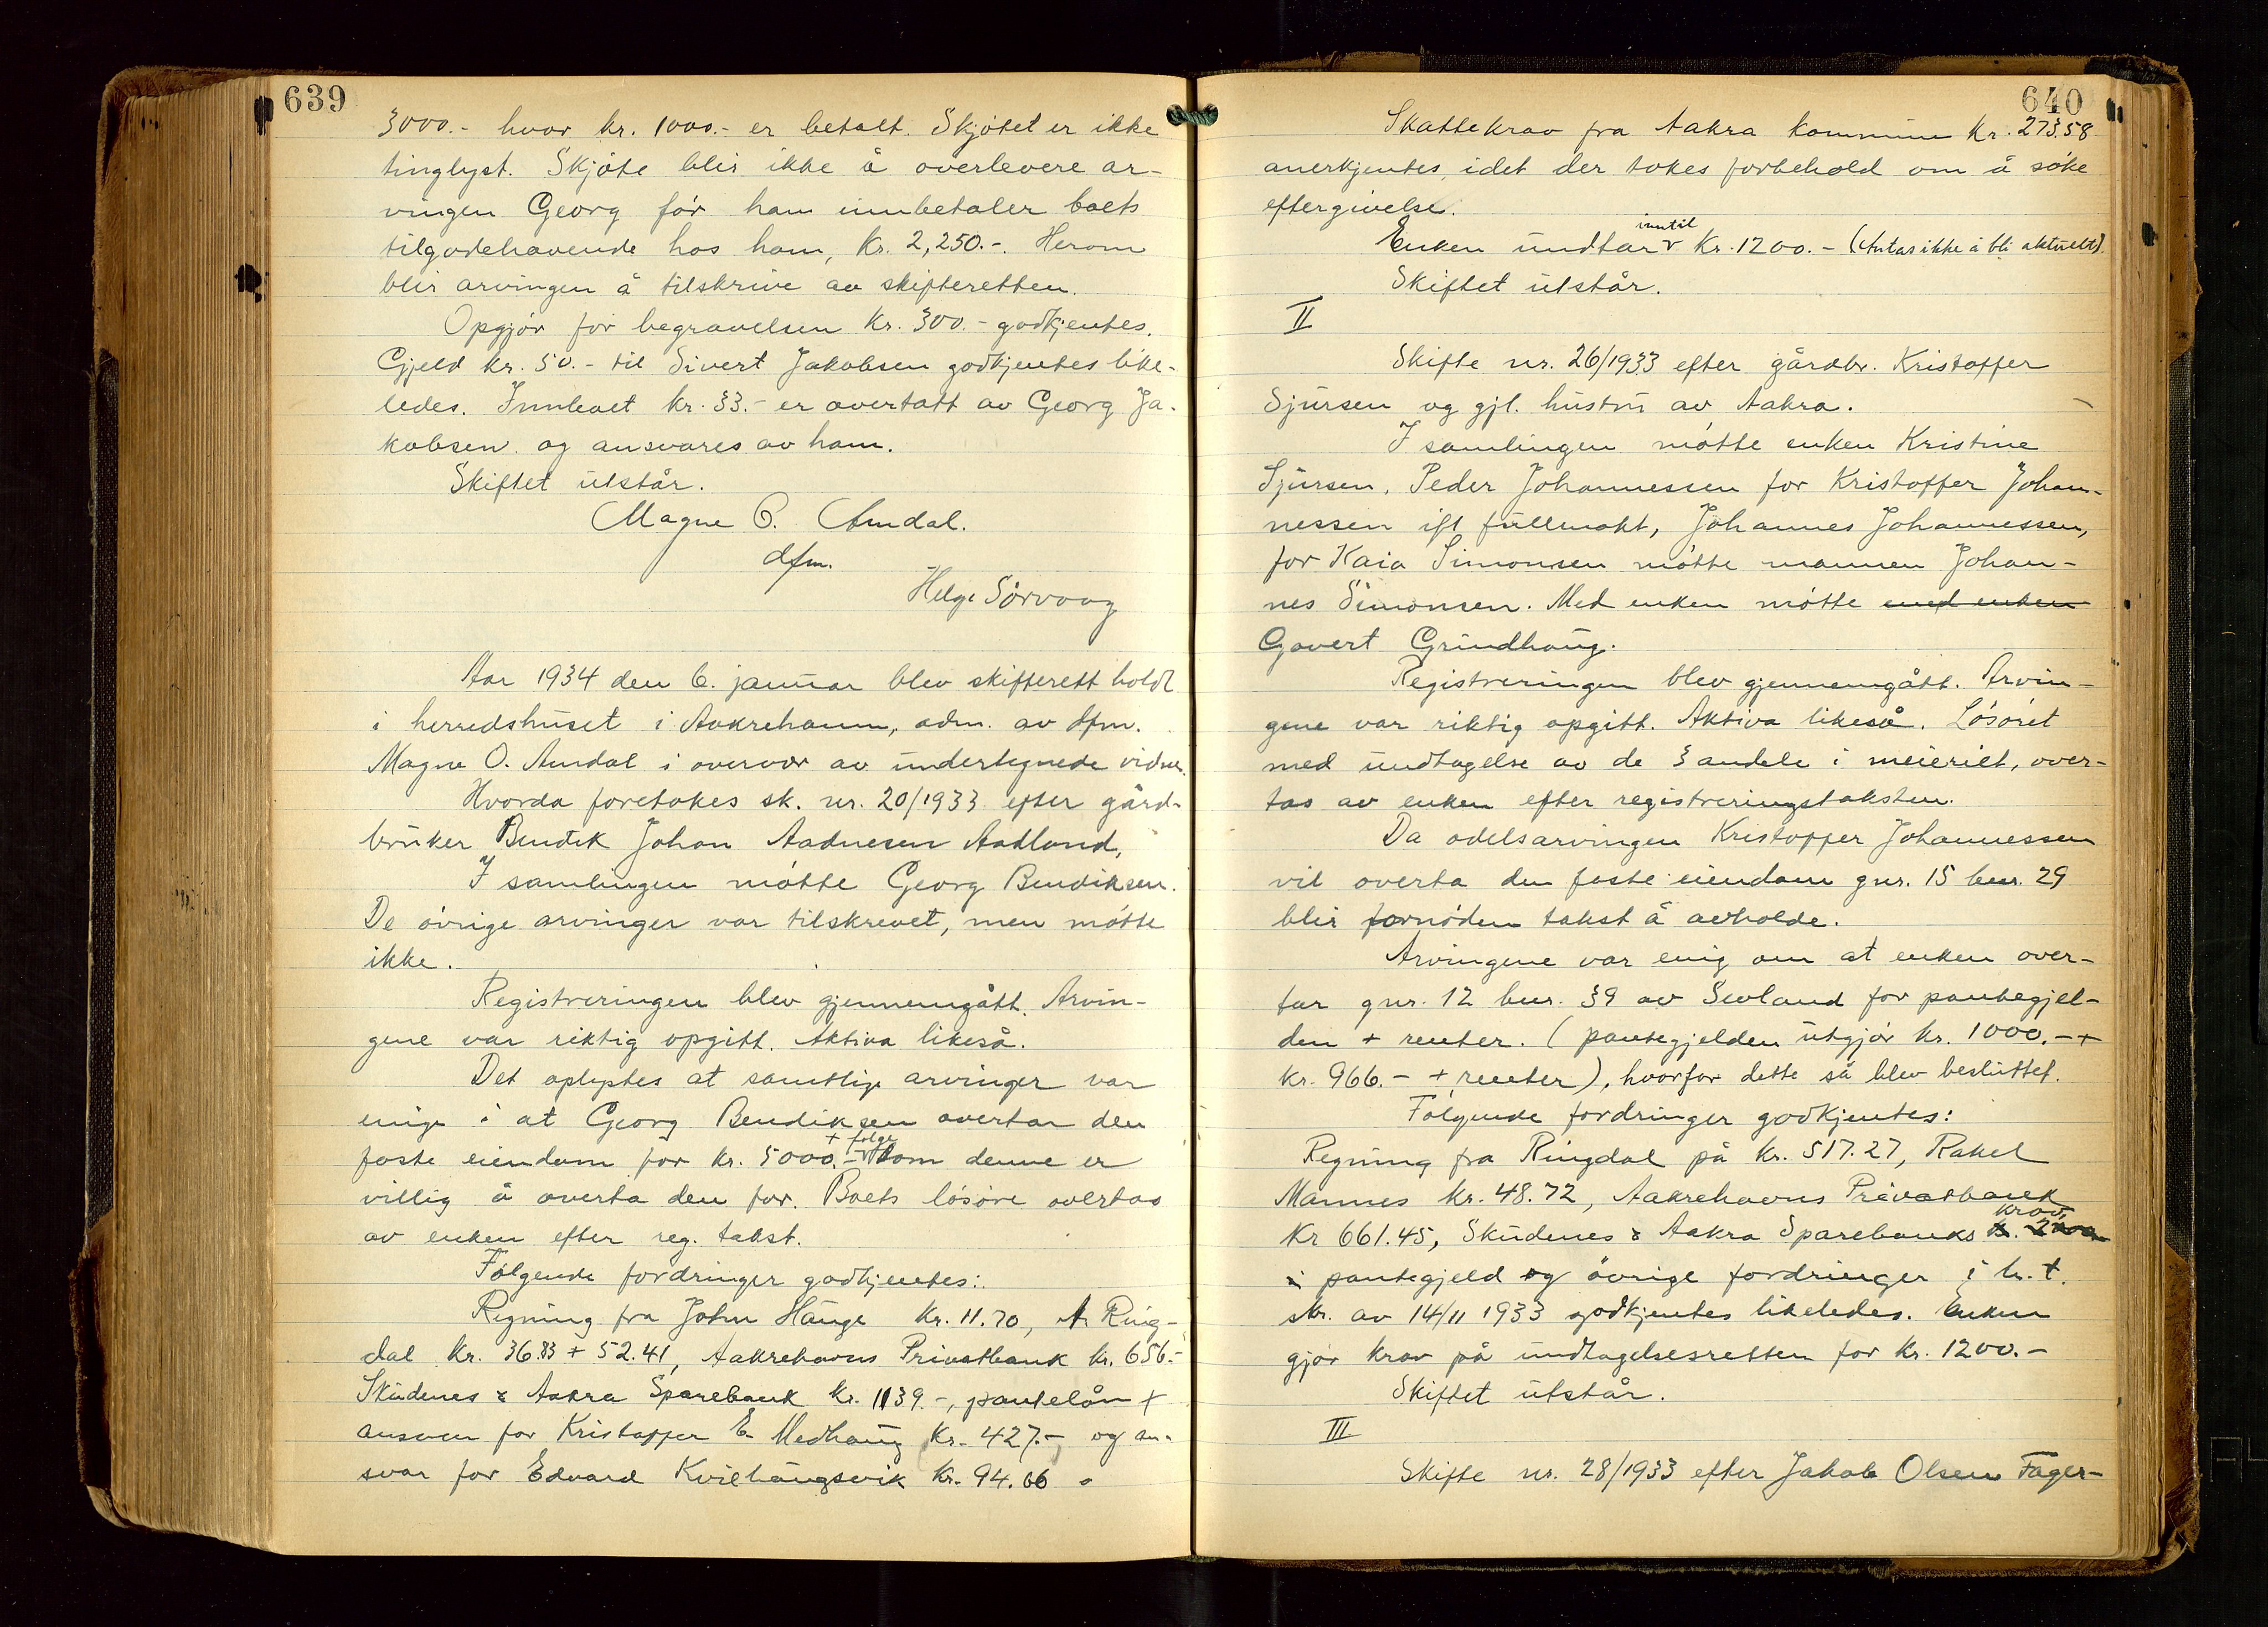 639
3000.- hvor kr. 1000.- er betalt. Skjøtet er ikke
tinglyst. Skjøte blir ikke å overlevere ar-
vingen Georg før ham innbetaler boets
tilgodehavende hos ham, kr. 2,250.-. Herom
blir arvingen å tilskrive av skifteretten.
Opgjør for begravelsen kr. 300.- godkjentes.
Gjeld kr. 50.- til Sivert Jakobsen godkjentes like-
ledes. Innboet kr. 33.- er overtatt av Georg Ja-
kobsen og ansvares av ham.
Skiftet utstår.
Magne O. Amdal.
dfm.
Helge Sörvaag
Aar 1934 den 6. januar blev skifterett holdt
i herredshuset i Aakrehamn, adm. av dfm.
Magne O. Amdal i overvær av undertegnede vidne.
Hvorda foretokes sk. nr. 20/1933 efter gård-
bruker Bendik Johan Aadnesen Aadland,
I samlingen møtte Georg Bendiksen.
De øvrige arvinger var tilskrevet, men møtte
ikke.
Registreringen blev gjennemgått. Arvin-
gene var riktig opgitt. Aktiva likeså.
Det oplystes at samtlige arvinger var
enige i at Georg Bendiksen overtar den
faste eiendom for kr. 5000.- + følge som denne er
villig å overta den for. Boets løsøre overtas
av enken efter reg. takst.
Følgende fordringer godkjentes:
Regning fra John Hauge kr. 11.70, A. Ring-
dal kr. 36.83 + 52.41, Aakrehavns Privatbank kr. 656.-
Skudenes & Aakra Sparebank kr. 1139.-, pantelån +
ansvar for Kristoffer E. Medhaug kr. 427.- og an-
svar for Edvard Kvilhaugsvik kr. 94.66.
640
Skattekrav fra Aakra kommune kr. 273.58
anerkjentes, idet der tokes forbehold om å søke
eftergivelse.
Enken undtar inntil kr. 1200.- (Antas ikke å bli aktuelt).
Skiftet utstår.
II
Skifte nr. 26/1933 efter gårdbr. Kristoffer
Sjursen og gjl. hustru av Aakra.
I samlingen møtte enken Kristine
Sjursen, Peder Johannessen for Kristoffer Johan-
nessen ifl fullmakt, Johannes Johannessen,
for Kaia Simonsen møtte mannen Johan-
nes Simonsen. Med enken møtte med enken
Govert Grindhaug.
Registreringen blev gjennemgått. Arvin-
gene var riktig opgitt. Aktiva likeså. Løsøret
med undtagelse av de 3 andele i meieriet, over-
tas av enken efter registreringstaksten.
Da odelsarvingen Kristoffer Johannessen
vil overta den faste eiendom gnr. 15 bnr. 29
blir fornøden takst å avholde.
Arvingene var enig om at enken over-
tar gnr. 12 bnr. 39 av Sevland for pantegjel-
den + renter. (pantegjelden utgjør kr. 1000.- +
kr. 966.- + renter), hvorfor dette så blev besluttet.
Følgende fordringer godkjentes:
Regning fra Ringdal på kr. 517.27, Rakel
Mannes kr. 48.72, Aakrehavns Privatbank
kr 661.45, Skudenes & Aakra Sparebanks krav,
i pantegjeld og øvrige fordringer i h. t.
skr. av 14/11 1933 godkjentes likeledes. Enken
gjør krav på undtagelsesretten for kr. 1200.-
Skiftet utstår.
III
Skifte nr. 28/1933 efter Jakob Olsen Fager-